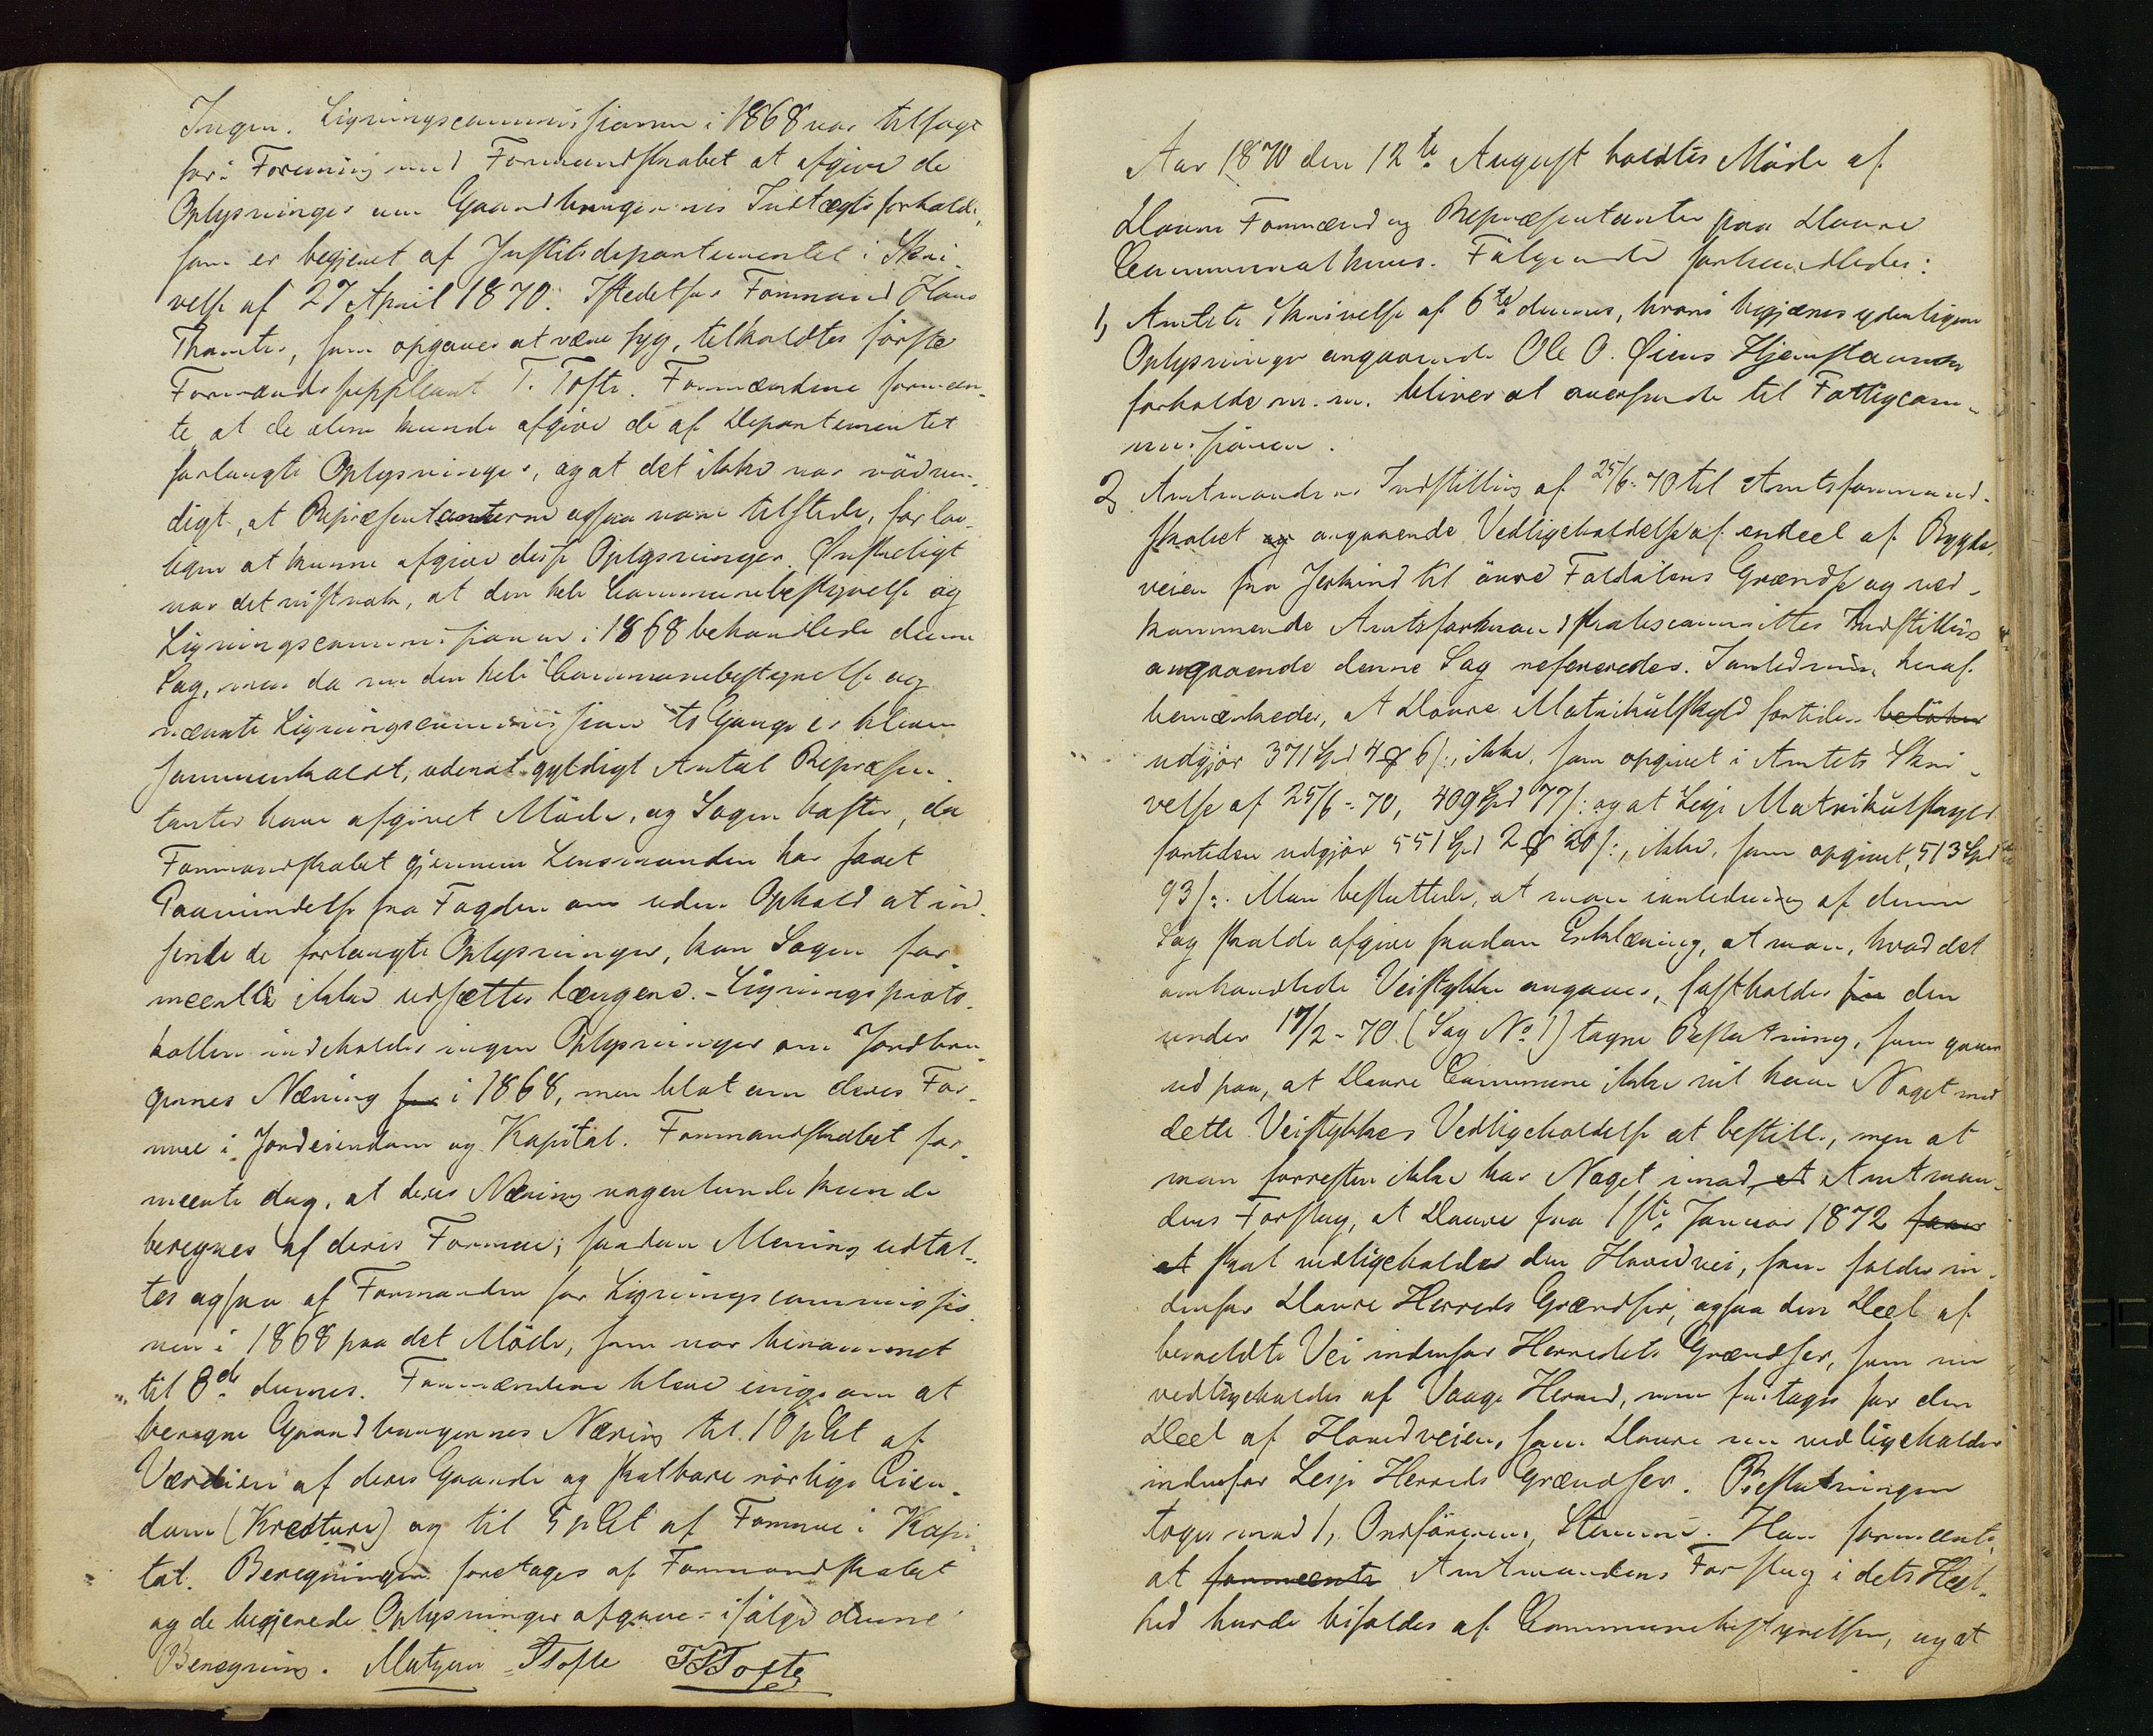 Ingen. Ligningscommissionen i 1868 var tilsagt
for i Forening med Formandskabet at afgive de
Oplysninger om Gaardbrugernes Indtægtsforholde,
som er begjeret af Justitsdepartementet i Skri-
velse af 27 April 1870. Istedetfor Formand Hans
Thamter, som opgaves at være syg, tilkaldtes første
Formandssuppleant T. Tofte. Formændene formeen-
te at de alene kunde afgive de af Departementet
forlangte Oplysninger, og at det ikke var nödven-
digt, at Repræsentanterne ogsaa vare tilstede, for lov-
ligen at kunne afgive disse Oplysninger. Ønskeligt
var det vistnok, at den hele Communebestyrelse og
Ligningscommissionen i 1868 behandlede denne
Sag, men da nu den hele Communebestyrelse og
nævnte Ligningscommission to Gange er bleven
sammenkaldt, uden at gyldigt Antal Repræsen-
tanter have afgivet Möde, og Sagen haster, da
Formandskabet gjennem Lensmanden har faaet
Paamindelse fra Fogden om uden Ophold at ind-
sende de forlangte Oplysninger, kan Sagen for-
meentlig ikke udsættes længere. - Ligningsproto-
kollen indeholder ingen Oplysninger om Jordbru-
gernes Næring for i 1868, men blot om deres For-
mue i Jordeiendom og Kapital. Formandskabet for-
meente dog, at deres Næring nogenlunde kunde
beregnes af deres Formue; saadan Mening udtal-
tes ogsaa af Formanden for Ligningscommissio-
nen i 1868 paa det Möde, som var berammet
til 8de dennes. Formændene bleve enige om at
beregne Gaardbrugernes Næring til 10 pCt af
Værdien af deres Gaarde og skatbare rörlige Eien-
dom (Kreature) og til 5 pCt af Formue i Kapi-
tal. Beregningen foretages af Formandskabet
og de begjerede Oplysninger afgives ifölge denne
Beregning. Matzen T Tofte T T Tofte
Aar 1870 den 12te August holdtes Möde af
Dovre Formænd og Repræsentanter paa Dovre
Communalhuus. Fölgende forhandledes:
1, Amtets Skrivelse af 6te dennes, hvori begjæres yderligere
Oplysninger angaaende Ole O. Øiens Hjemstavns
forholde m. m. bliver at oversende til Fattigcom-
missionen.
2, Amtmandens Indstilling af 25/6-70 til Amtsformand-
skabet og angaaende Vedligeholdelse af endeel af Bygde-
veien fra Jerkind til övre Foldalens Grændse og ved-
kommende Amtsformandskabscommittes Indstilling
angaaende denne Sag refereredes. I Anledning heraf
bemærkedes, at Dovre Matrikulskyld fortiden belöber
udgjör 371 Spd 4 ₰ 6 s:, ikke, som opgivet i Amtets Skri-
velse af 25/6-70, 409 Spd 77 s: og at Lesje Matrikulskyld
fortiden udgjör 551 Spd 2 ₰ 20 s:, ikke, som opgivet, 513 Spd
93 s:. Man besluttede, at man i anledning af denne
Sag skulde afgive saadan Erklæring, at man, hvad det
omhandlede Veistykke angaaer, fastholder sin den
under 17/2-70 (Sag No 1) tagne Beslutning, som gaaer
ud paa, at Dovre Commune ikke vil have Noget med
dette Veistykkes Vedligeholdelse at bestille, men at
man forresten ikke har Noget imod, at Amtman-
dens Forslag, at Dovre fra 1ste Januar 1872 faaer
at skal vedligeholde den Hovedvei, som falder in-
denfor Dovre Herreds Grændser, ogsaa den Deel af
bemeldte Vei indenfor Herredets Grændser, som nu
vedligeholdes af Vaage Herred, men fritages for den
Deel af Hovedveien, som Dovre nu vedligeholder
indenfor Lesje Herreds Grændser. Beslutningen
toges mod 1, Ordförerens, Stemme. Han formeente,
at formeente Amtmandens Forslag i dets Heel-
hed burde bifaldes af Communebestyrelsen, og at